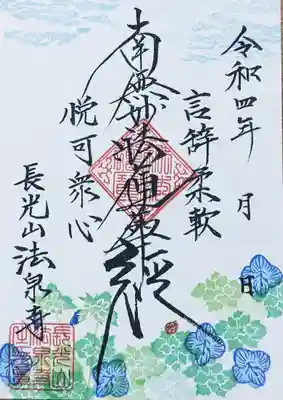 令和四年 月 日
言辞柔軟
南無妙法蓮華経
悦可衆心
長光山法泉寺